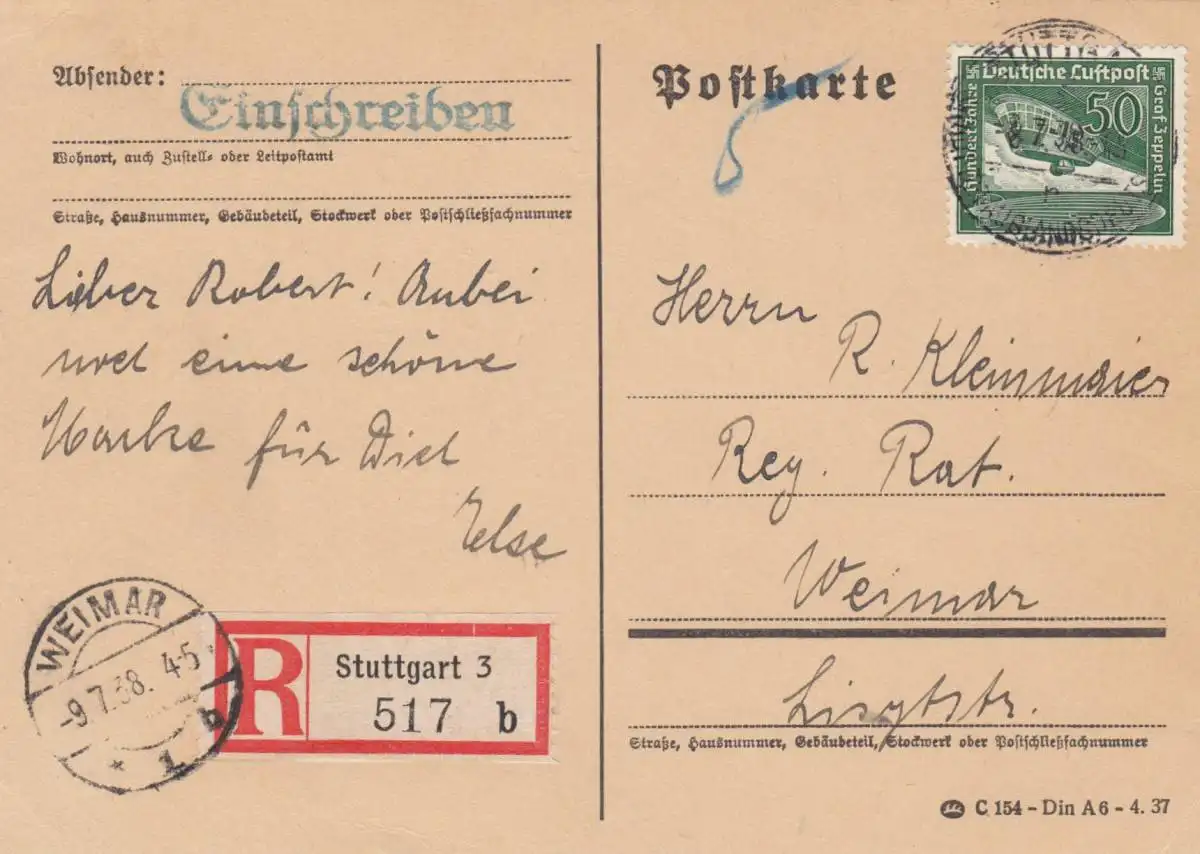 Absender:
Einschreiben
Wohnort, auch Zustell- oder Leitpostamt
Straße, Hausnummer, Gebäudeteil, Stockwerk oder Postschließfachnummer
Lieber Robert! Anbei
noch eine schöne
Marke für Dich
Else
WEIMAR
-9.7.38. 4-5
* 1 b
R
Stuttgart 3
517 b
Postkarte
Deutsche Luftpost
Hundert Jahre
50
Graf Zeppelin
-8.7.38
AUSLANDS
Herrn
R. Kleinmaier
Reg. Rat.
Weimar
Lisztstr.
Straße, Hausnummer, Gebäudeteil, Stockwerk oder Postschließfachnummer
C 154 - Din A 6 - 4. 37